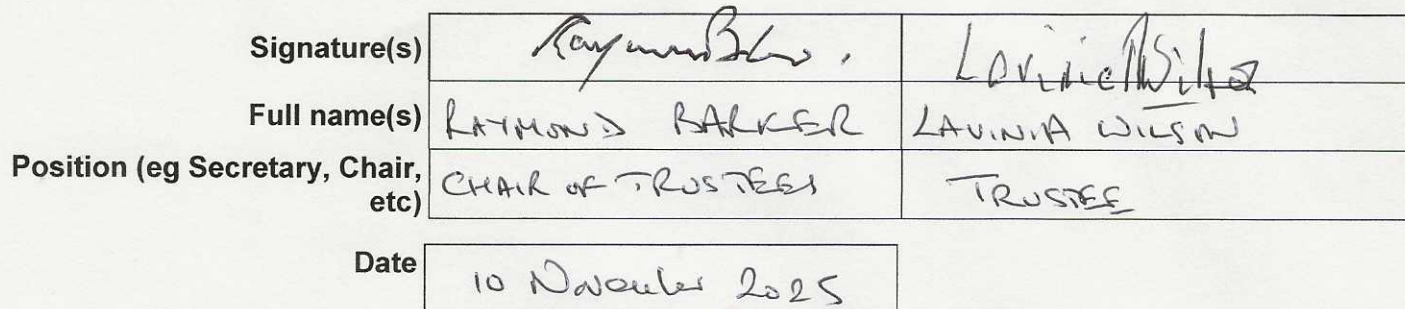 Signature(s) Raymond Barker. Lavinia Wilson
Full name(s) RAYMOND BARKER LAVINIA WILSON
Position (eg Secretary, Chair, etc) CHAIR OF TRUSTEES TRUSTEE
Date 10 November 2025